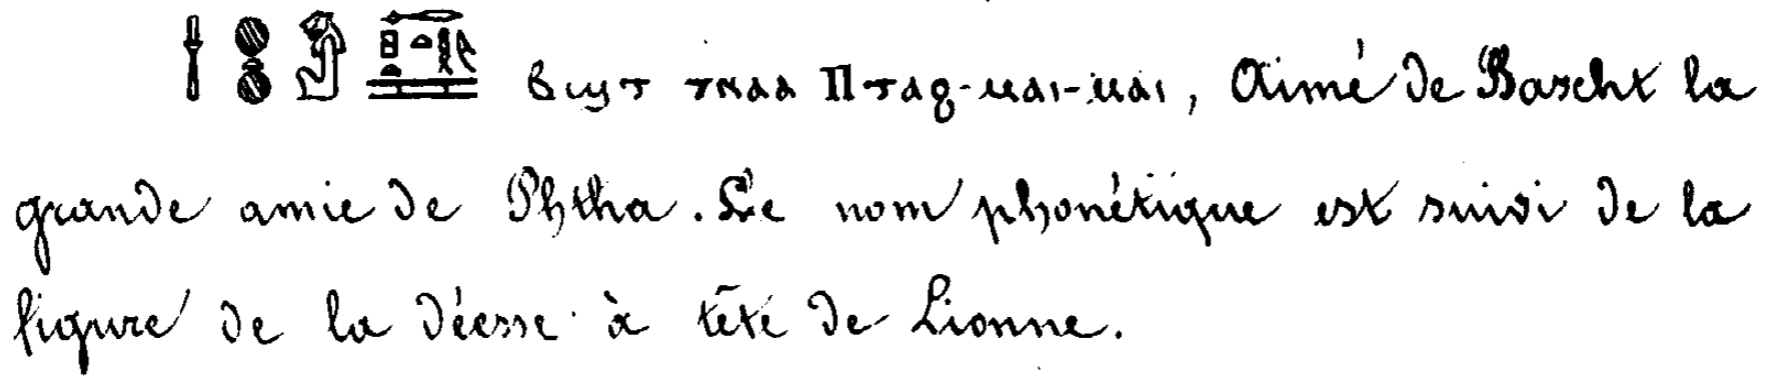 ⲃϣⲧ ⲧⲛⲁⲁ Ⲡⲧⲁϩ-ⲙⲁⲓ-ⲙⲁⲓ, Aimé de Bascht la
grande amie de Phtha. Le nom phonétique est suivi de la
figure de la déesse à tête de Lionne.